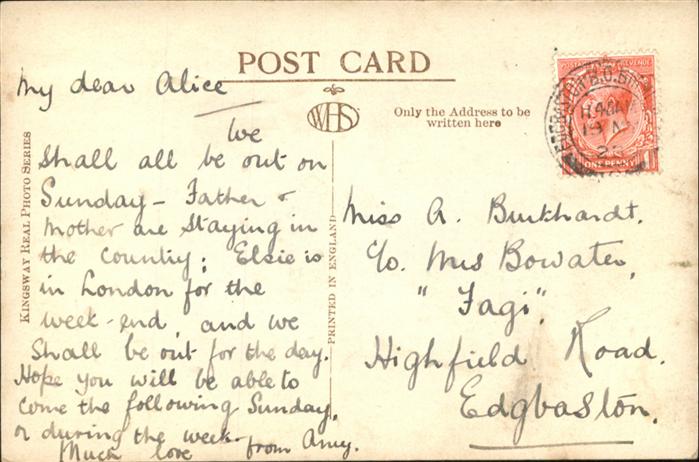 POST CARD
My dear Alice
We
shall all be out on
Sunday - Father &
Mother are staying in
the country; Elsie is
in London for the
week-end, and we
shall be out for the day.
Hope you will be able to
come the following Sunday,
or during the week.
Much love from Amy.
KINGSWAY REAL PHOTO SERIES
WHS
PRINTED IN ENGLAND
Only the Address to be
written here
Miss A. Burkhardt.
c/o. Mrs Bowater,
"Fagi",
Highfield Road.
Edgbaston.
REVENUE
ONE PENNY